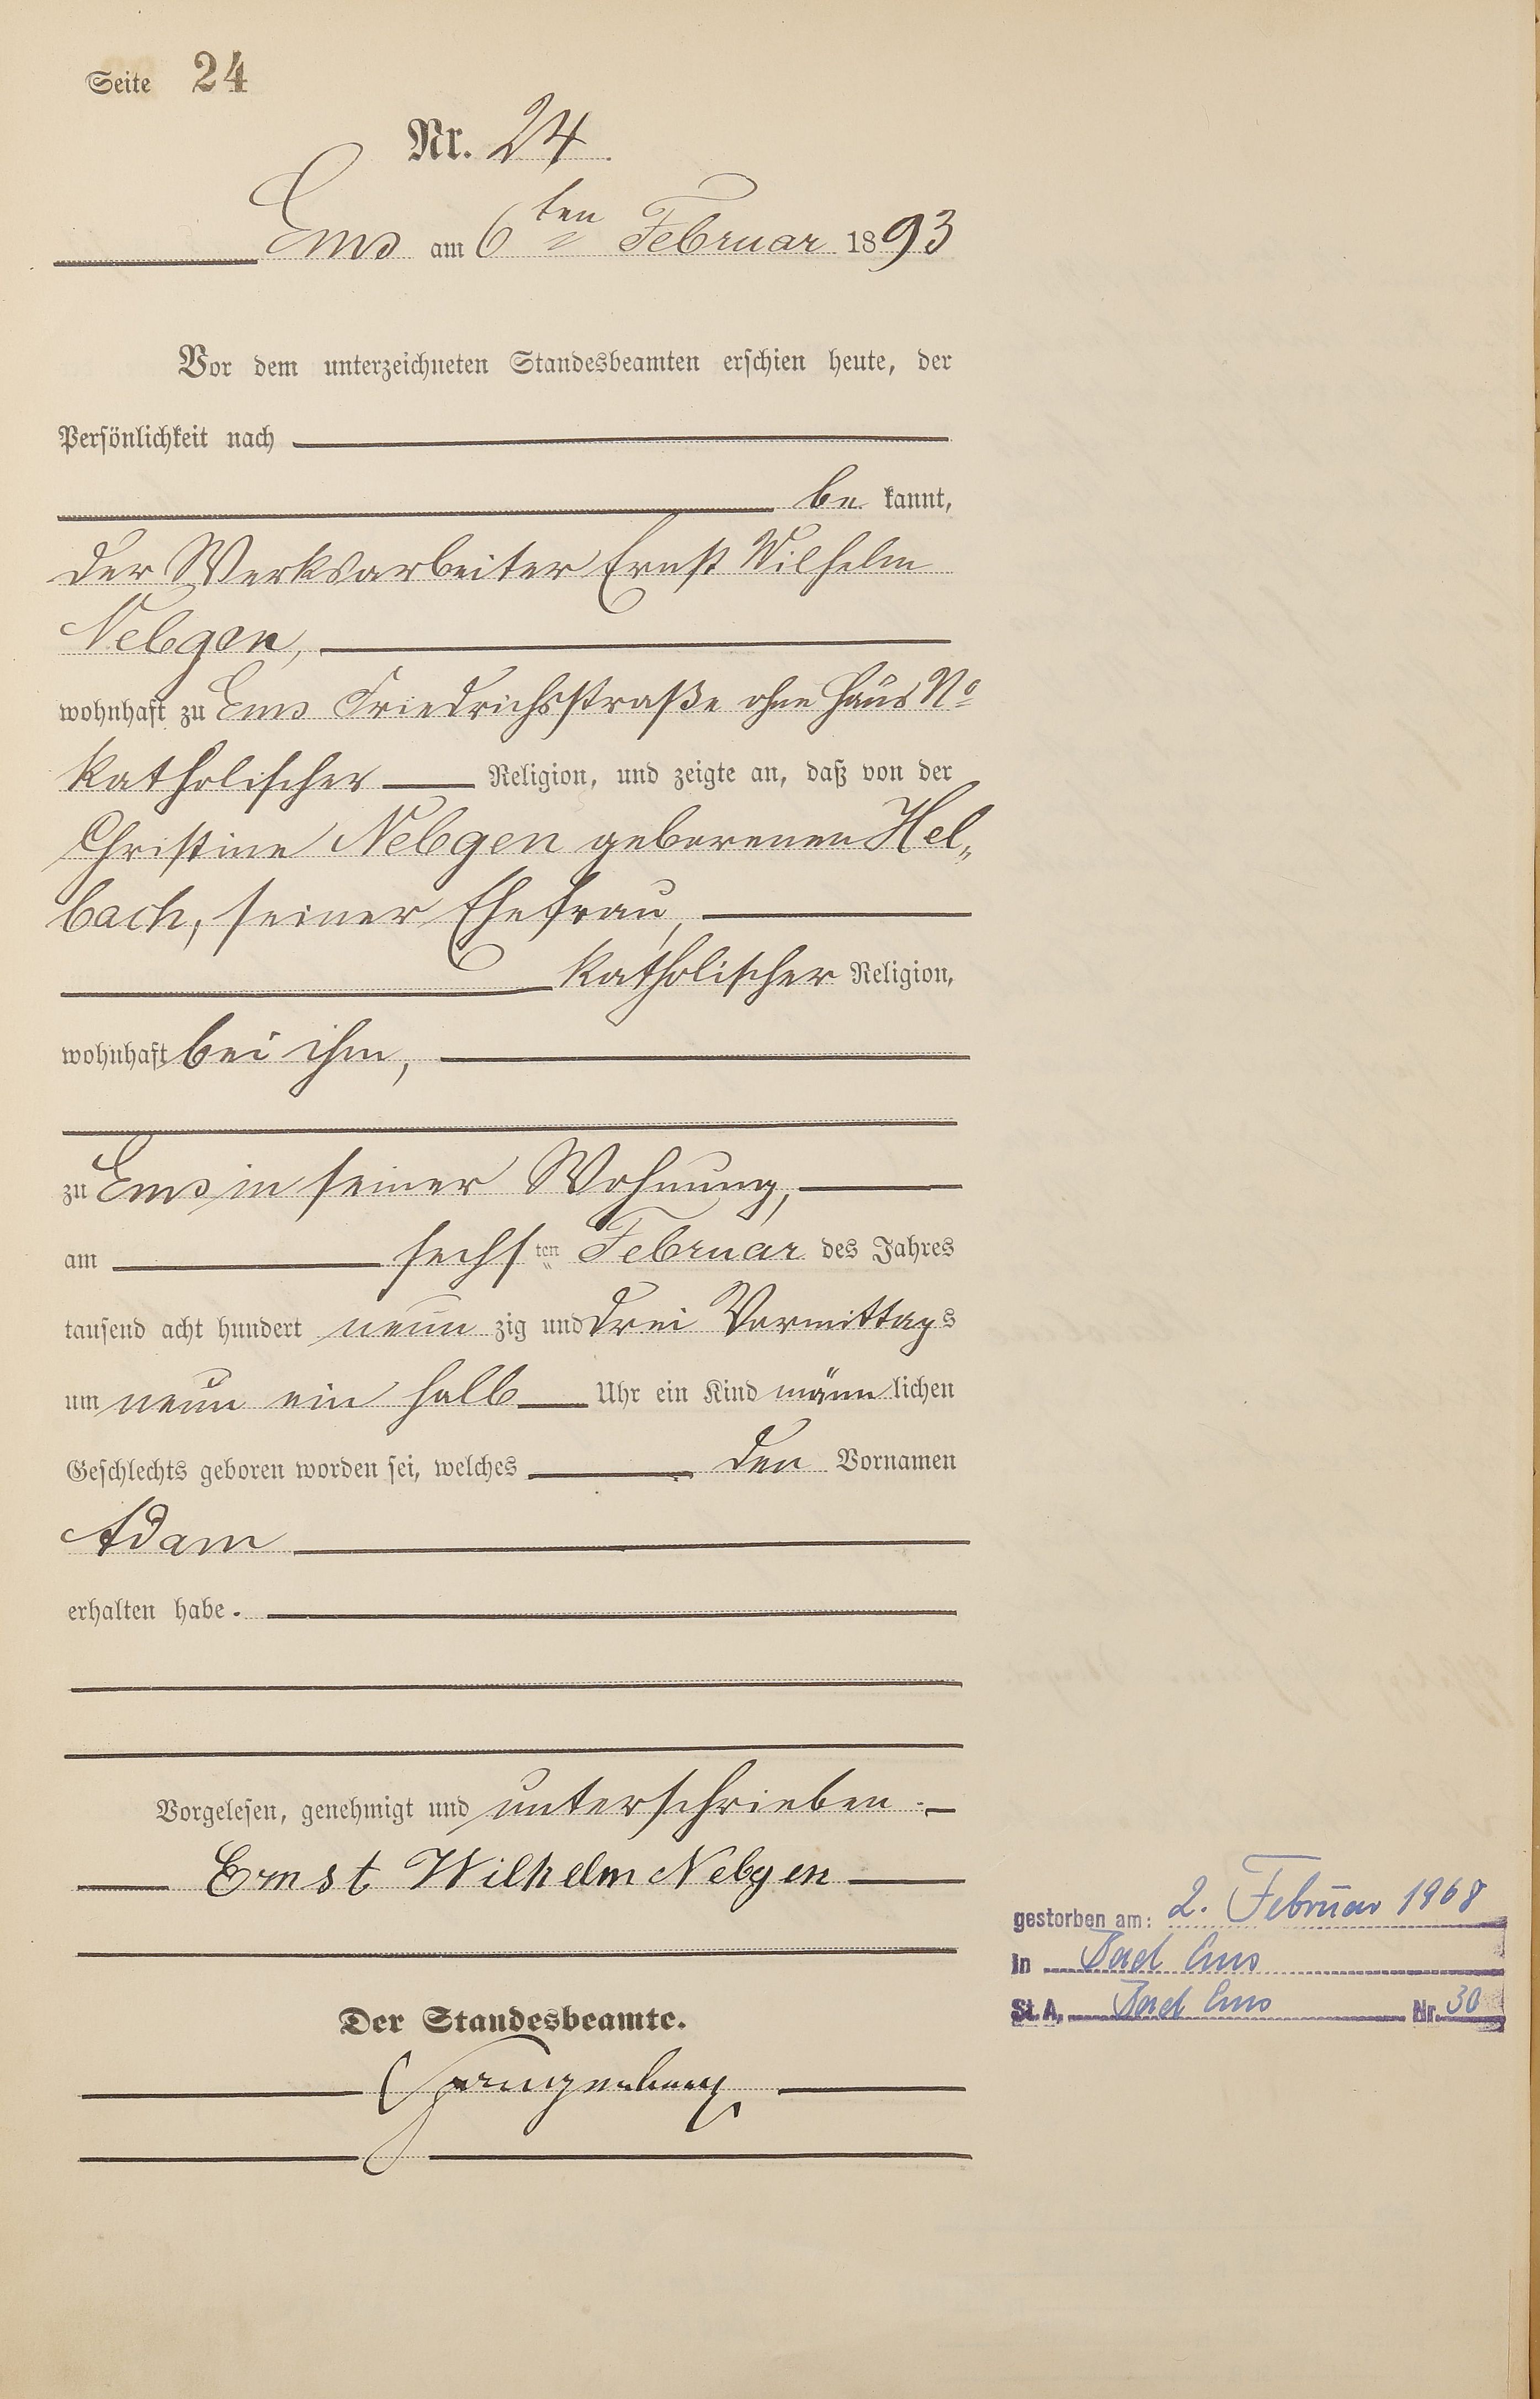 Seite 24
Nr. 24
Ems am 6ten Februar 1893
Vor dem unterzeichneten Standesbeamten erschien heute, der
Persönlichkeit nach
be kannt,
der Werksarbeiter Ernst Wilhelm
Nebgen,
wohnhaft zu Ems Friedrichsstraße ohne Haus No
katholischer Religion, und zeigte an, daß von der
Christine Nebgen geborenen Hel„
bach, seiner Ehefrau,
katholischer Religion,
wohnhaft bei ihm,
zu Ems in seiner Wohnung,
am sechsten Februar des Jahres
tausend acht hundert neun zig und drei Vormittags
um neun ein halb Uhr ein Kind männlichen
Geschlechts geboren worden sei, welches den Vornamen
Adam
erhalten habe.
Vorgelesen, genehmigt und unterschrieben.
Ernst Wilhelm Nebgen
gestorben am: 2. Februar 1968
in Bad Ems
St. A. Bad Ems Nr. 30
Der Standesbeamte.